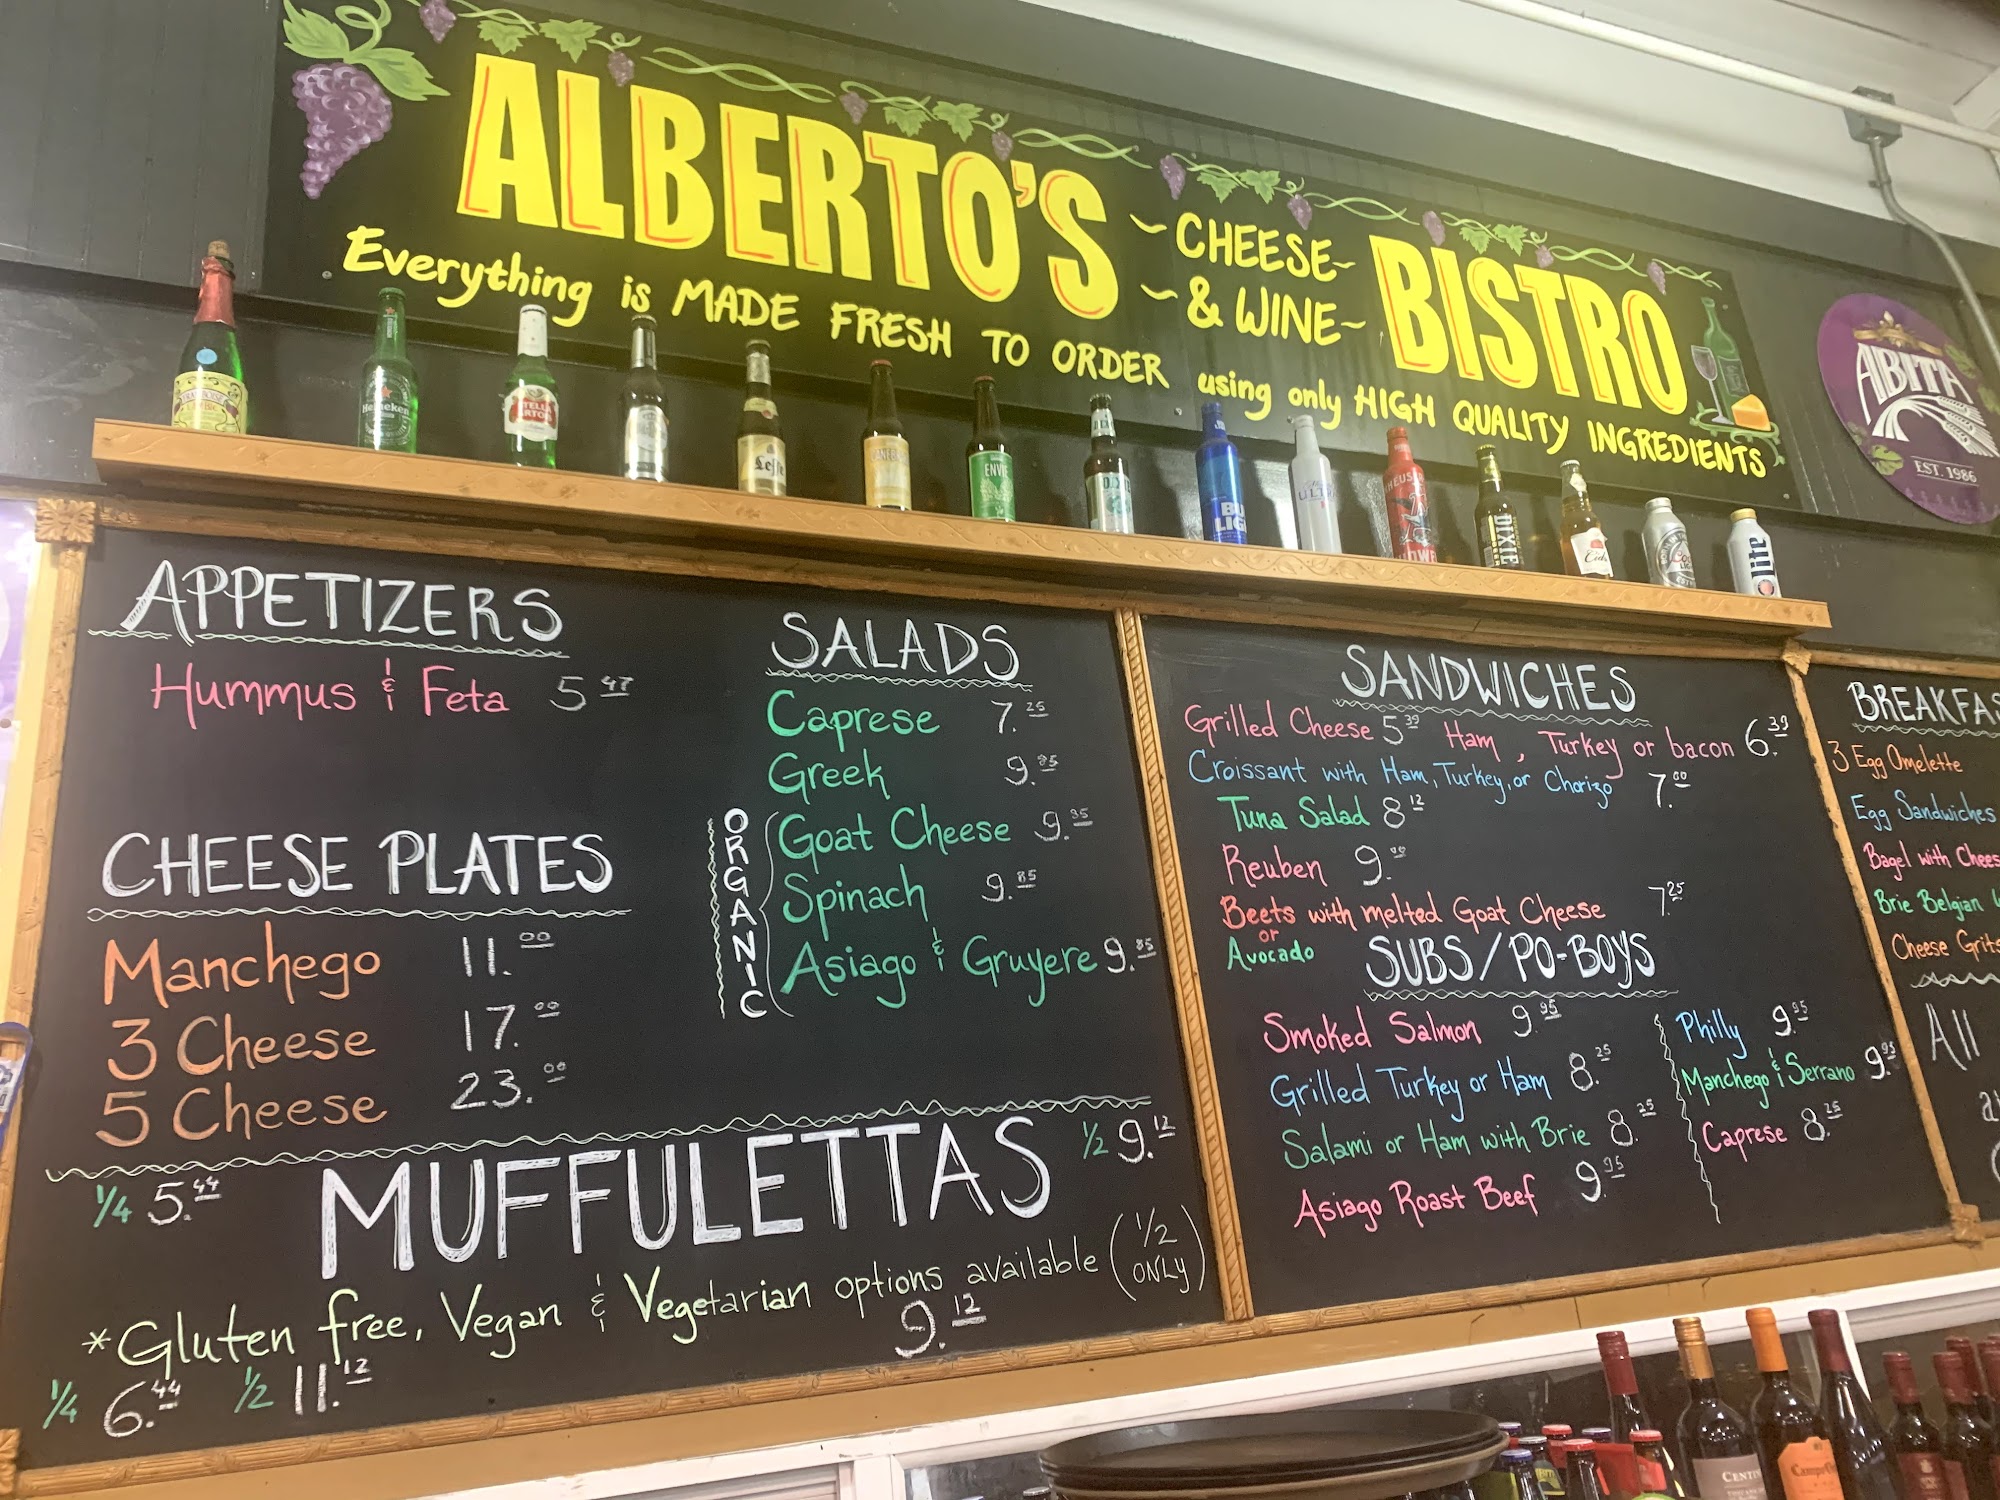 ALBERTO'S ~CHEESE~ BISTRO
~& WINE~
Everything is MADE FRESH TO ORDER using only HIGH QUALITY INGREDIENTS
ABITA
EST. 1986
Heineken
STELLA ARTOIS
Leffe
ENVIE
BUD LIGHT
ULTRA
DIXIE
lite
APPETIZERS
Hummus & Feta 5 47
CHEESE PLATES
Manchego 11.00
3 Cheese 17.00
5 Cheese 23.00
SALADS
Caprese 7.25
Greek 9.85
ORGANIC
Goat Cheese 9.85
Spinach 9.85
Asiago & Gruyere 9.85
MUFFULETTAS
1/4 5.44
1/2 9.12
*Gluten free, Vegan & Vegetarian options available (1/2 ONLY)
9.12
1/4 6.44 1/2 11.12
SANDWICHES
Grilled Cheese 5.39 Ham, Turkey or bacon 6.39
Croissant with Ham, Turkey, or Chorizo 7.00
Tuna Salad 8.12
Reuben 9.00
Beets with melted Goat Cheese 7.25
or
Avocado
SUBS/PO-BOYS
Smoked Salmon 9.95
Grilled Turkey or Ham 8.25
Salami or Ham with Brie 8.25
Asiago Roast Beef 9.95
Philly 9.95
Manchego & Serrano 9.95
Caprese 8.25
3 Egg Omelette
Egg Sandwiches
Bagel with
Brie Belgian
Cheese Grits
All